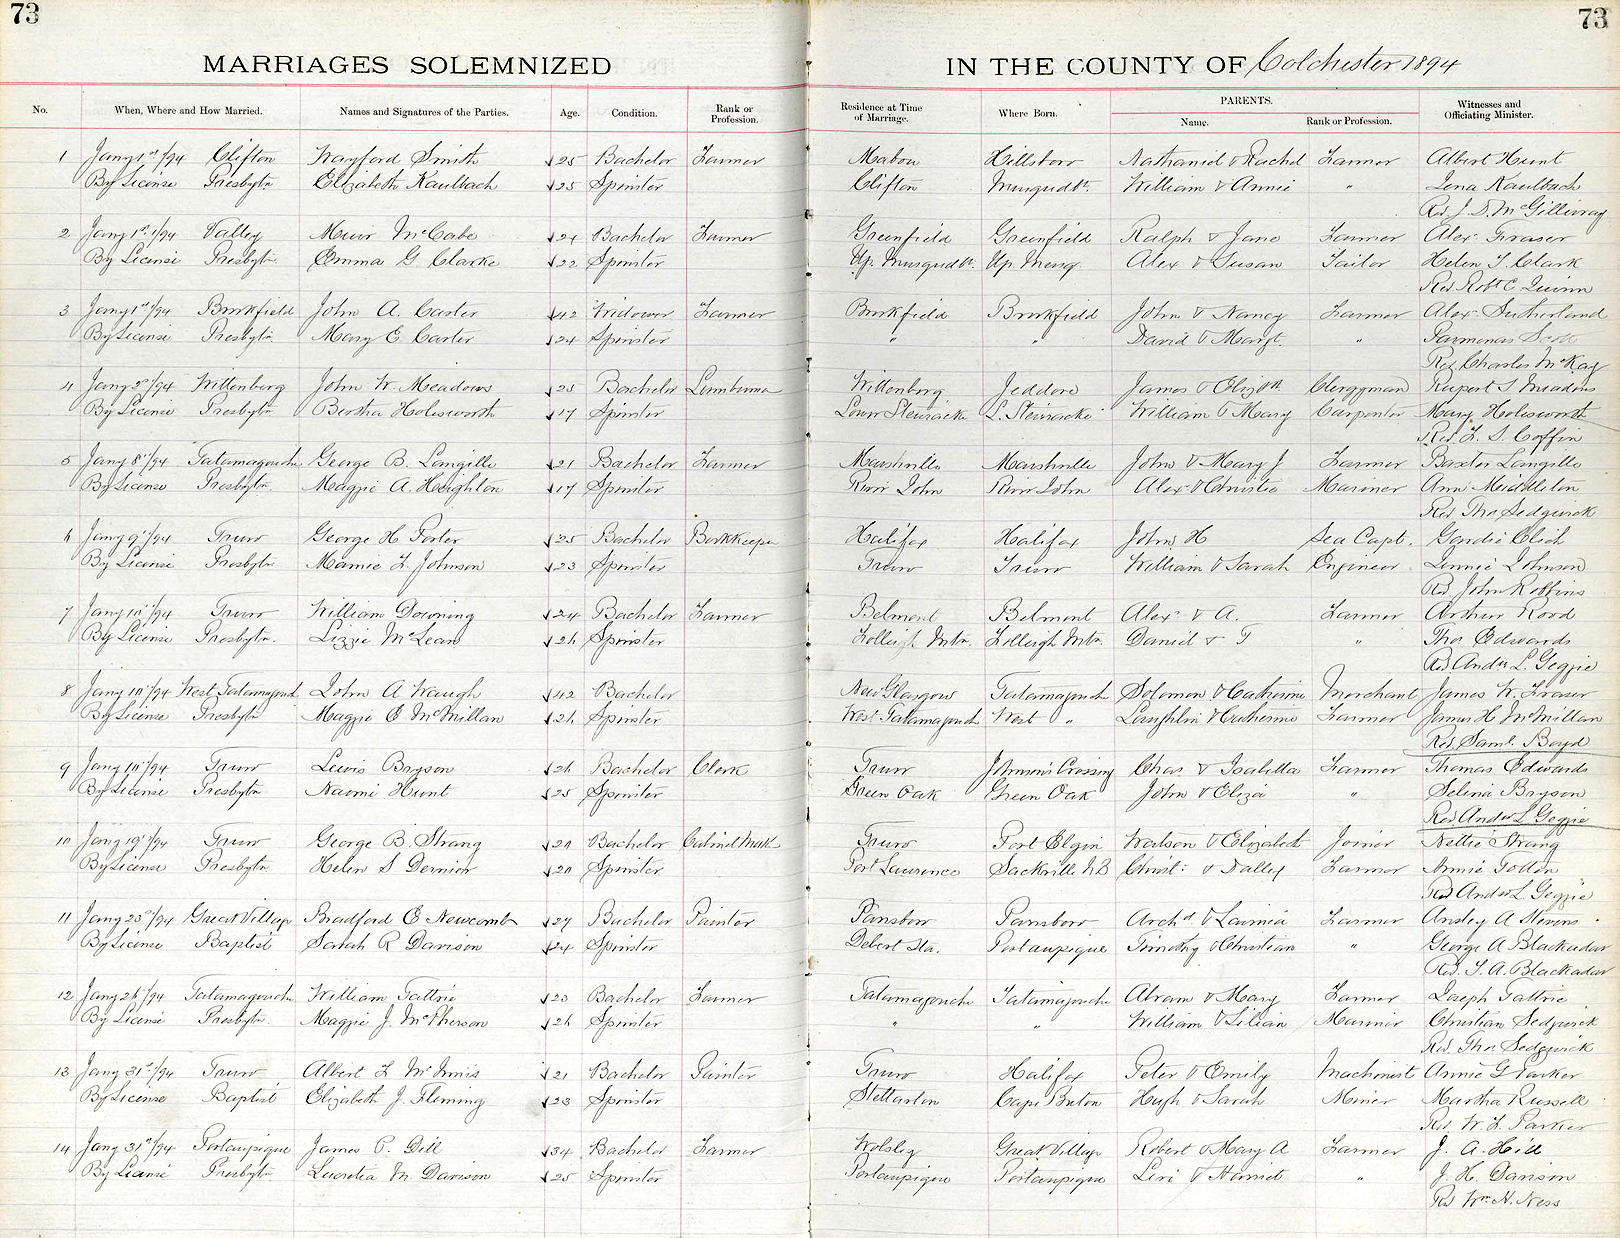 73
73
MARRIAGES SOLEMNIZED IN THE COUNTY OF Colchester 1894
No. When, Where and How Married. Names and Signatures of the Parties. Age. Condition. Rank or Profession. Residence at Time of Marriage. Where Born. PARENTS. Name. Rank or Profession. Witnesses and Officiating Minister.
1 Jany 1st/94 Clifton Wayford Smith 25 Bachelor Farmer Mabou Hillsboro Nathaniel & Rachel Farmer Albert Hunt
By License Presbytn Elizabeth Kaulbach 25 Spinster Clifton Musquodt. William & Annie " Lena Kaulbach
Rev. J. S. McGillivray
2 Jany 1st/94 Valley Muir McCabe 24 Bachelor Farmer Greenfield Greenfield Ralph & Jane Farmer Alex. Fraser
By License Presbytn. Emma G. Clarke 22 Spinster Up. Musquodt. Up. Musq. Alex & Susan Tailor Helen T. Clark
Rev. Robt C Quinn
3 Jany 1st/94 Brookfield John A. Carter 42 Widower Farmer Brookfield Brookfield John & Nancy Farmer Alex. Sutherland
By License Presbytn. Mary E. Carter 24 Spinster " " David & Margt. " Parmenas Scott
Rev. Charles McKay
4 Jany 2d/94 Wittenburg John W. Meadows 25 Bachelor Lumberman Wittenburg Jeddore James & Elizth Clergyman Rupert S. Meadows
By License Presbytn. Bertha Holesworth 17 Spinster Lower Stewiacke L. Stewiacke William & Mary Carpenter Mary Holesworth
Rev. F. S. Coffin
5 Jany 8th/94 Tatamagouche George B. Langille 21 Bachelor Farmer Marshville Marshville John & Mary J Farmer Baxter Langille
By License Presbytn. Maggie A. Heighton 17 Spinster River John River John Alex. & Christie Mariner Ann Middleton
Rev. Tho Sedgwick
6 Jany 9th/94 Truro George H Porter 25 Bachelor Bookkeeper Halifax Halifax John H Sea Capt.
By License Presbytn Mamie F. Johnson 23 Spinster Truro Truro William & Sarah Engineer Linnie Johnson
Rev John Robbins
7 Jany 10th/94 Truro William Downing 24 Bachelor Farmer Belmont Belmont Alex. & A. Farmer Arthur Rood
By License Presbytn. Lizzie McLean 26 Spinster Folleigh Mtn. Folleigh Mtn. Daniel & T " Tho Edwards
Rev. Andw L. Geggie
8 Jany 10th/94 West Tatamagouche John A Waugh 42 Bachelor New Glasgow Tatamagouche Solomon & Catherine Merchant James W. Fraser
By License Presbytn Maggie E McMillan 26 Spinster West Tatamagouche West " Laughlin & Catherine Farmer James H. McMillan
Rev. Saml. Boyd
9 Jany 10th/94 Truro Lewis Bryson 26 Bachelor Clerk Truro Johnson's Crossing Chas. & Isabella Farmer Thomas Edwards
By License Presbytn Naomi Hunt 25 Spinster Green Oak Green Oak John & Eliza " Selena Bryson
Rev. Andw L. Geggie
10 Jany 19th/94 Truro George B. Strang 20 Bachelor Cabinet Mak Truro Port Elgin Watson & Elizabeth Joiner Nettie Strang
By License Presbytn Helen S Dernier 20 Spinster Port Laurence Sackville N.B Farmer Annie
Rev. Andw L. Geggie
11 Jany 23rd/94 Great Village Bradford E Newcomb 27 Bachelor Painter Parrsboro Parrsboro Archd & Lavinia Farmer Ansley A Stevens
By License Baptist Sarah R Davison 24 Spinster Debert Sta. Portaupique Timothy & Christian " George A Blackadar
Rev. T. A. Blackadar
12 Jany 26th/94 Tatamagouche William Tattrie 23 Bachelor Farmer Tatamagouche Tatamagouche Abram & Mary Farmer Joseph Tattrie
By License Presbytn. Maggie J. McPherson 26 Spinster " " William & Lilian Mariner Christian Sedgwick
Rev. Tho Sedgwick
13 Jany 31st/94 Truro Albert F McInnis 21 Bachelor Painter Truro Halifax Peter & Emily Machinist Annie G Parker
By License Baptist Elizabeth J. Fleming 23 Spinster Stellarton Cape Breton Hugh & Sarah Miner Martha Russell
Rev. W. F. Parker
14 Jany 31st/94 Portaupique James P. Dill 34 Bachelor Farmer Wolsley Great Village Robert & Mary A Farmer J. A. Hill
By License Presbytn Lucretia M. Davison 25 Spinster Portaupique Portaupique Levi & Harriet " J. H. Davison
Rev Wm. H. Ness